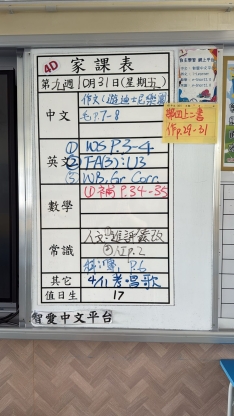 4D
家課表
第九週 10月31日(星期五)
中文
作文(遊迪士尼樂園)
毛P.7-8
英文
① WS P.3-4
② FA(3): U3
③ WB, Gr Corr
數學
① 補 P.34-35
常識
人文: ①進評簽改
② 紅P.2
P.6
其它
4/11 考唱歌
值日生
17
智愛中文平台
第四上二書
作p.29-31